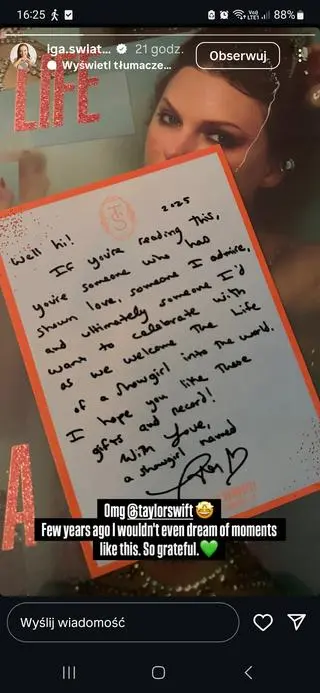 16:25
88%
iga.swiat... 21 godz.
Wyświetl tłumacze...
Obserwuj
LIFE
TS
2025
Well hi!
If you're reading this,
you're someone who has
shown love, someone I admire,
and ultimately someone I'd
want to celebrate with
as we welcome The Life
of a Showgirl into the world.
I hope you like these
gifts and record!
With Love,
a showgirl named
A
Omg @taylorswift 🤩
Few years ago I wouldn't even dream of moments
like this. So grateful.💚
Wyślij wiadomość